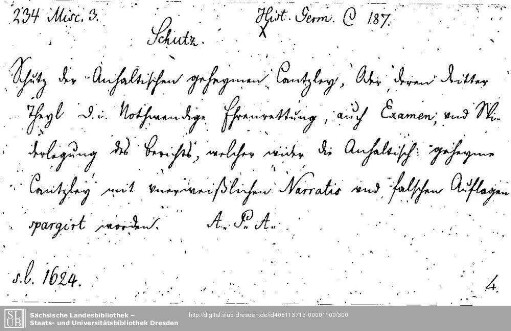 234 Misc. 3.
Hist. Germ. C 187.
X
Schutz.
Schutz der Anhaltischen geheymen Cantzley, Oder, deren dritter
Theyl d. i. Nothwendige Ehrenrettung, auch Examen, vnd Wi-
derlegung des Berichts, welcher wider die Anhaltisch: geheyme
Cantzley mit vnerweißlichen Narratis vnd falschen Auflagen
spargirt worden. A. P. A.
s.l. 1624.
4.
Sächsische Landesbibliothek –
Staats- und Universitätsbibliothek Dresden